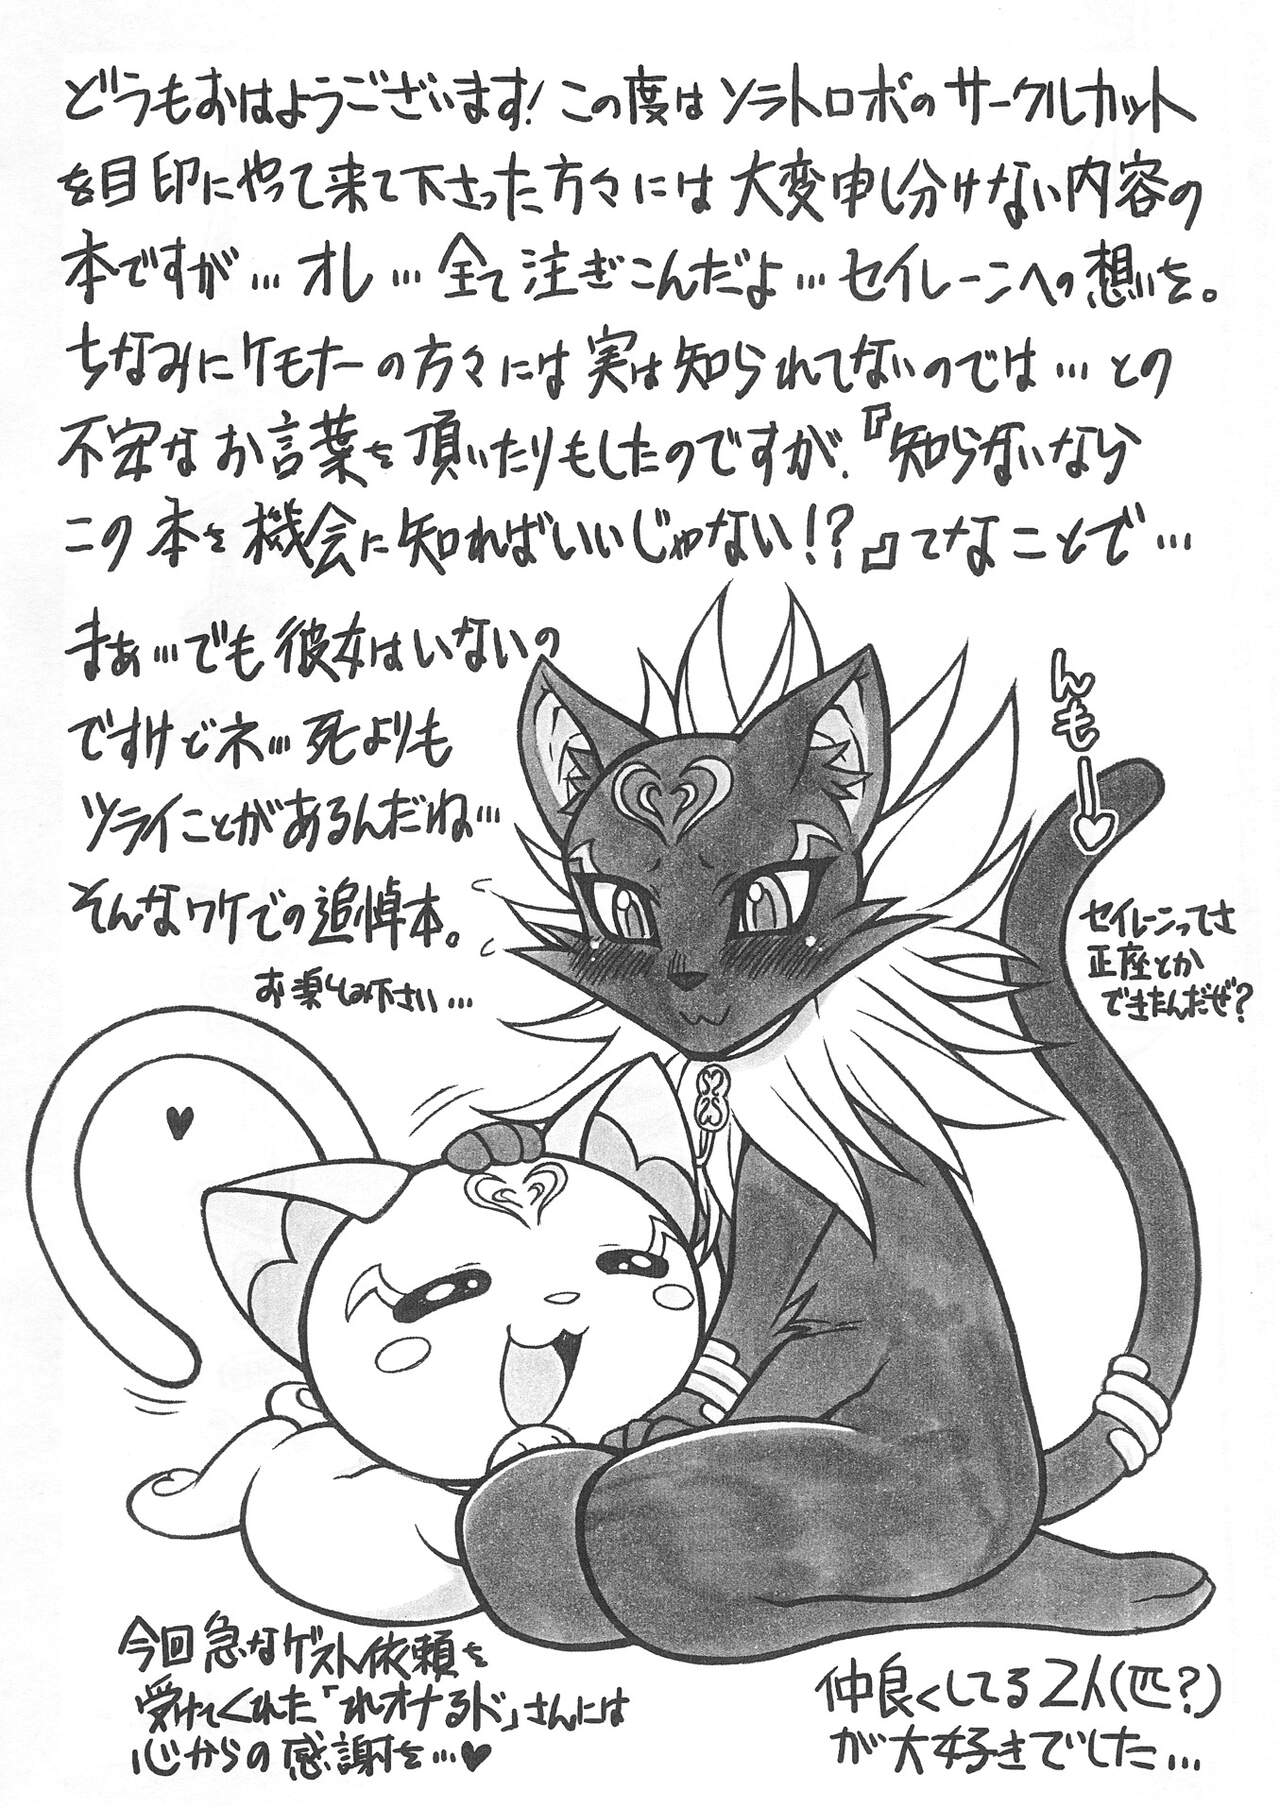 どうもおはようございます!この度はソラトロボのサークルカット
を目印にやって来て下さった方々には大変申し分けない内容の
本ですが…オレ…全て注ぎこんだよ…セイレーンへの想いを。
ちなみにケモナーの方々には実は知られてないのでは…との
不安なお言葉を頂いたりもしたのですが、『知らないなら
この本を機会に知ればいいじゃない!?』てなことで…
まぁ…でも彼女はいないの
ですけどネ…死よりも
ツライことがあるんだね…
そんなワケでの追悼本。
お楽しみ下さい…
んも〜♡
セイレーンってさ
正座とか
できたんだぜ?
今回急なゲスト依頼を
受けてくれた「れオナるド」さんには
心からの感謝を…♥
仲良くしてる2人(匹?)
が大好きでした…